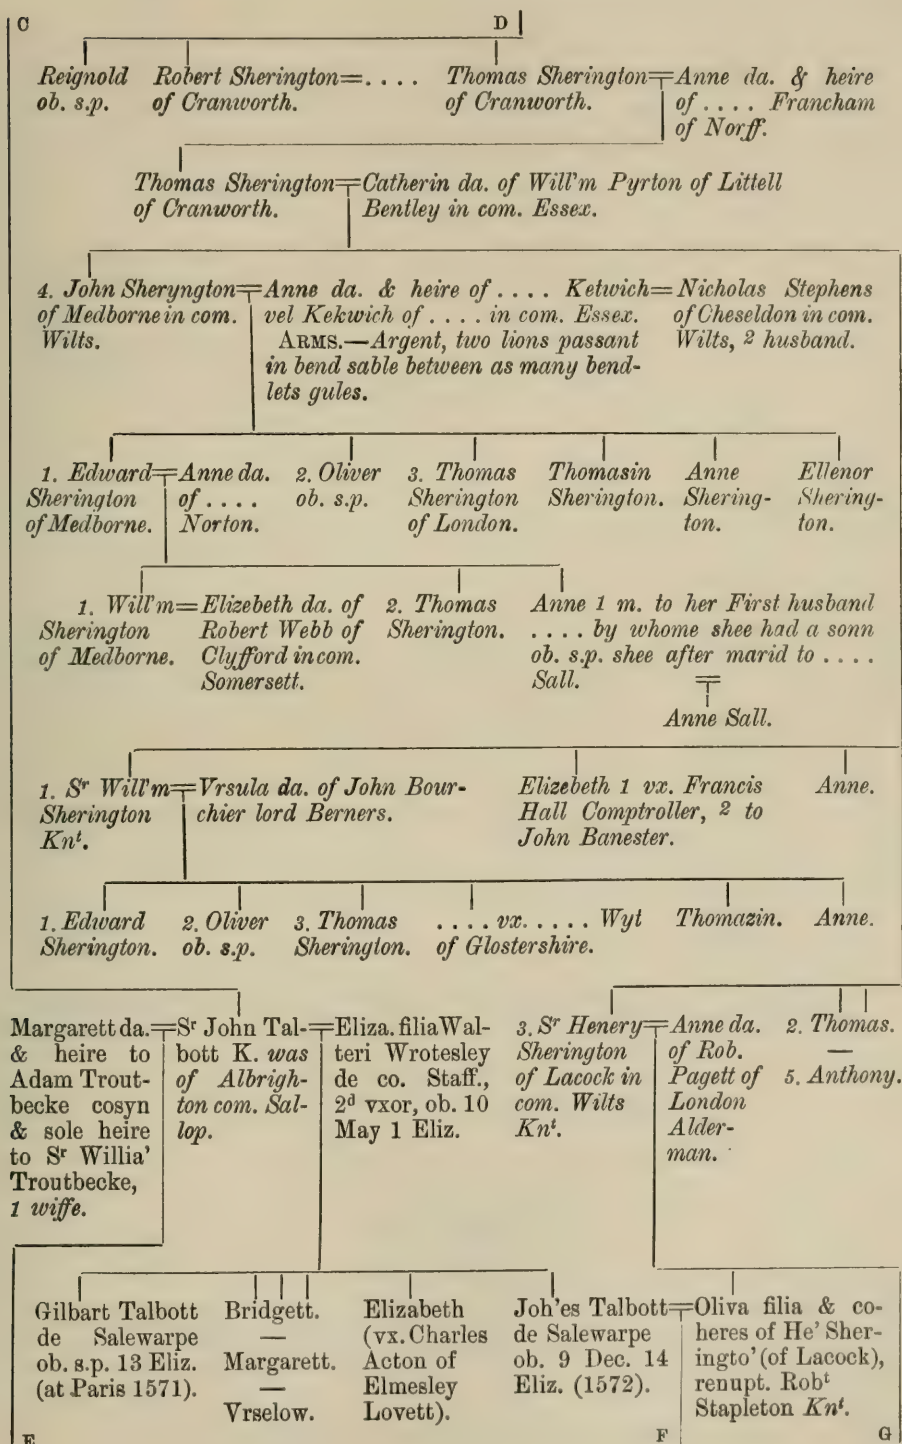 C D
Reignold
ob. s.p.
Robert Sherington=. . . .
of Cranworth.
Thomas Sherington=
of Cranworth.
Anne da. & heire
of . . . . Francham
of Norff.
Thomas Sherington=
of Cranworth.
Catherin da. of Will'm Pyrton of Littell
Bentley in com. Essex.
4. John Sheryngton=
of Medborne in com.
Wilts.
Anne da. & heire of . . . . Ketwich=
vel Kekwich of . . . . in com. Essex.
ARMS.—Argent, two lions passant
in bend sable between as many bend-
lets gules.
Nicholas Stephens
of Cheseldon in com.
Wilts, 2 husband.
1. Edward=
Sherington
of Medborne.
Anne da.
of . . . .
Norton.
2. Oliver
ob. s.p.
3. Thomas
Sherington
of London.
Thomasin
Sherington.
Anne
Shering-
ton.
Ellenor
Shering-
ton.
1. Will'm=
Sherington
of Medborne.
Elizebeth da. of
Robert Webb of
Clyfford in com.
Somersett.
2. Thomas
Sherington.
Anne 1 m. to her First husband
. . . . by whome shee had a sonn
ob. s.p. shee after marid to . . . .
Sall.
=
Anne Sall.
1. Sr Will'm=
Sherington
Knt.
Vrsula da. of John Bour-
chier lord Berners.
Elizebeth 1 vx. Francis
Hall Comptroller, 2 to
John Banester.
Anne.
1. Edward
Sherington.
2. Oliver
ob. s.p.
3. Thomas
Sherington.
. . . . vx. . . . . Wyt
of Glostershire.
Thomazin.
Anne.
Margarett da.=
& heire to
Adam Trout-
becke cosyn
& sole heire
to Sr Willia'
Troutbecke,
1 wiffe.
Sr John Tal-=
bott K. was
of Albrigh-
ton com. Sal-
lop.
Eliza. filia Wal-
teri Wrotesley
de co. Staff.,
2d vxor, ob. 10
May 1 Eliz.
3. Sr Henery=
Sherington
of Lacock in
com. Wilts
Knt.
Anne da.
of Rob.
Pagett of
London
Alder-
man.
2. Thomas.
—
5. Anthony.
Gilbart Talbott
de Salewarpe
ob. s.p. 13 Eliz.
(at Paris 1571).
Bridgett.
—
Margarett.
—
Vrselow.
Elizabeth
(vx. Charles
Acton of
Elmesley
Lovett).
Joh'es Talbott=
de Salewarpe
ob. 9 Dec. 14
Eliz. (1572).
Oliva filia & co-
heres of He' Sher-
ingto' (of Lacock),
renupt. Robt
Stapleton Knt.
E F G